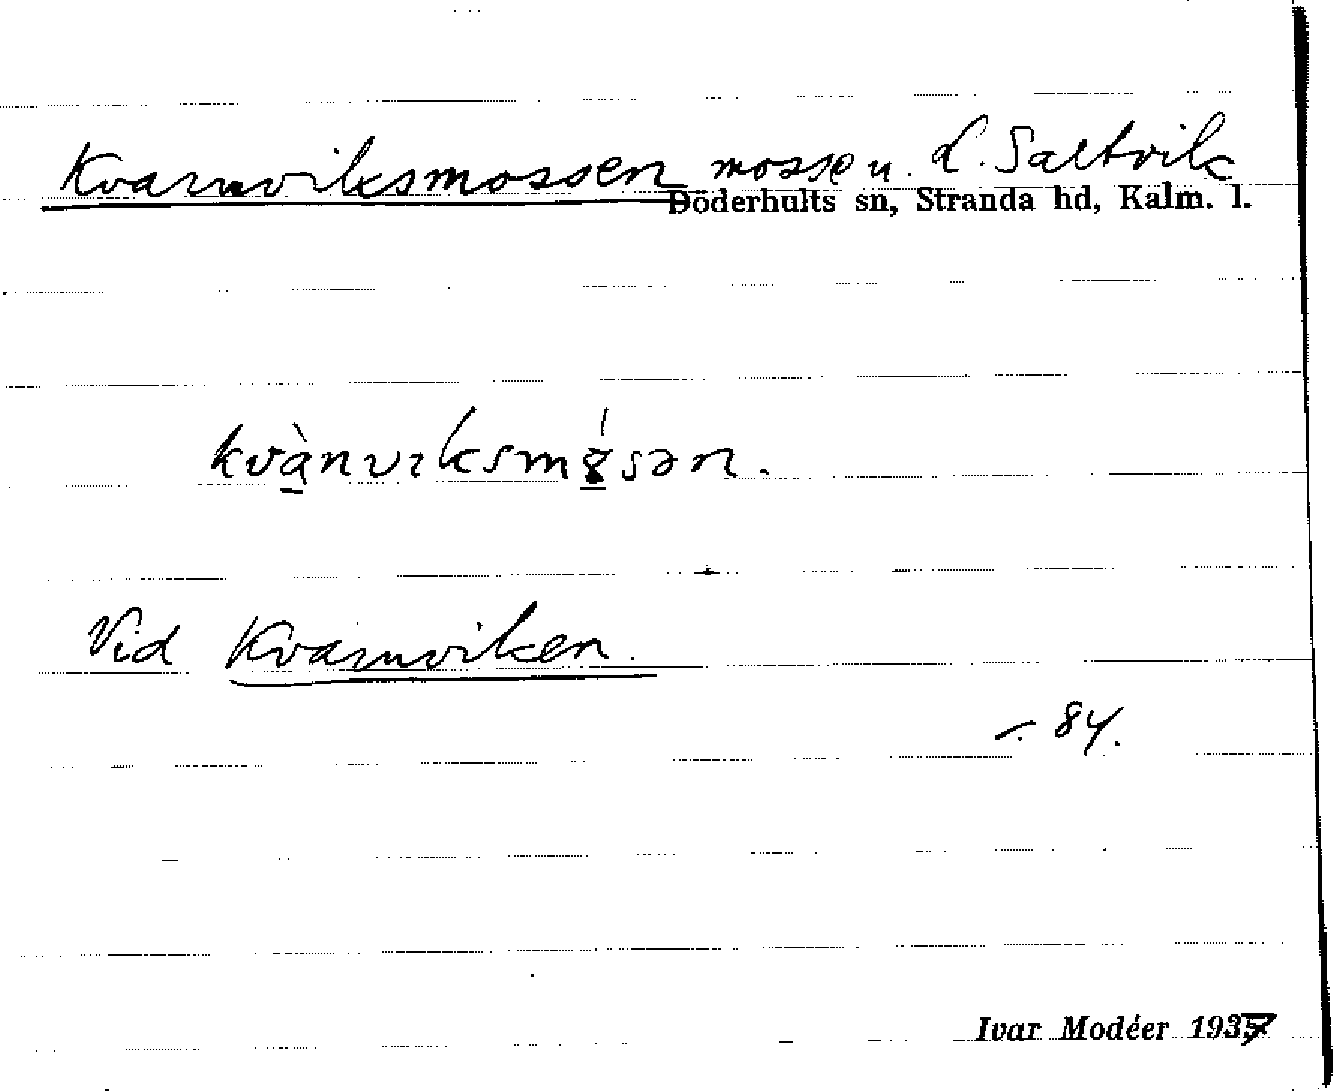 Kvarnviksmossen mosse u. L. Saltvik
Döderhults sn, Stranda hd, Kalm. l.
kvànvıksmı̊́sən.
Vid Kvarnviken.
–. 84.
Ivar Modéer 1937